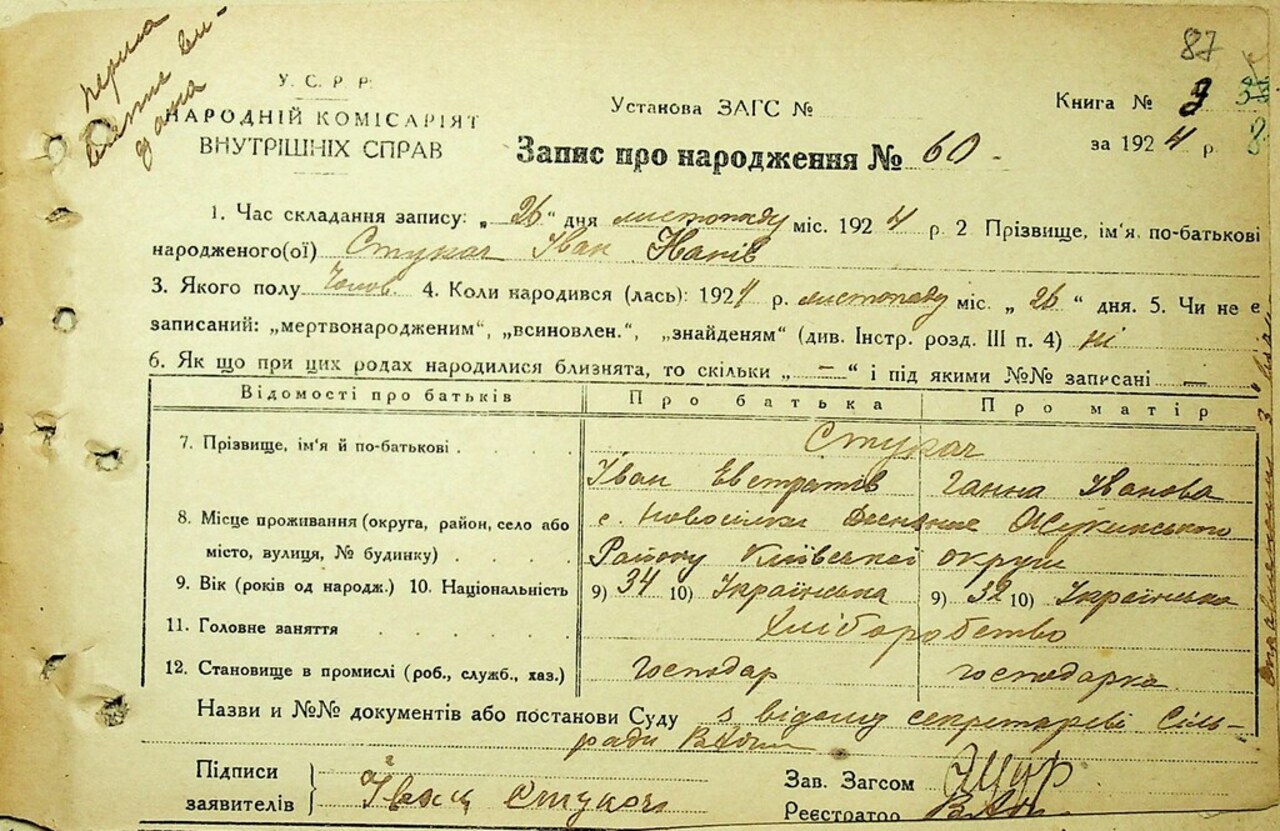 87
перша
виписка ви-
дана
У. С. Р. Р.
НАРОДНІЙ КОМІСАРІЯТ
ВНУТРІШНІХ СПРАВ
Установа ЗАГС №
Книга № 3
за 1924 р.
Запис про народження № 60
1. Час складання запису: „ 26 “ дня листопаду міс. 1924 р. 2 Прізвище, ім'я, по-батькові
народженого(ої) Стукач Іван Іванів
3. Якого полу Чолов. 4. Коли народився (лась): 1924 р. листопаду міс. „ 26 “ дня. 5. Чи не є
записаний: „мертвонародженим“, „всиновлен.“, „знайденям“ (див. Інстр. розд. III п. 4) ні
6. Як що при цих родах народилися близнята, то скільки „ — “ і під якими №№ записані —
Відомості про батьків Про батька Про матір
7. Прізвище, ім'я й по-батькові Стукач
Іван Евстратів Ганна Іванова
8. Місце проживання (округа, район, село або с. Новосілки Деснянські Жукинського
місто, вулиця, № будинку) Району Київської округи
9. Вік (років од народж.) 10. Національність 9) 34 10) Українська 9) 32 10) Українська
11. Головне заняття Хліборобство
12. Становище в промислі (роб., служб., хаз.) господар господарка
Назви и №№ документів або постанови Суду з відому секретареві Сіль-
ради
Підписи
заявителів
Іван Стукач
Зав. Загсом
Реєстратор